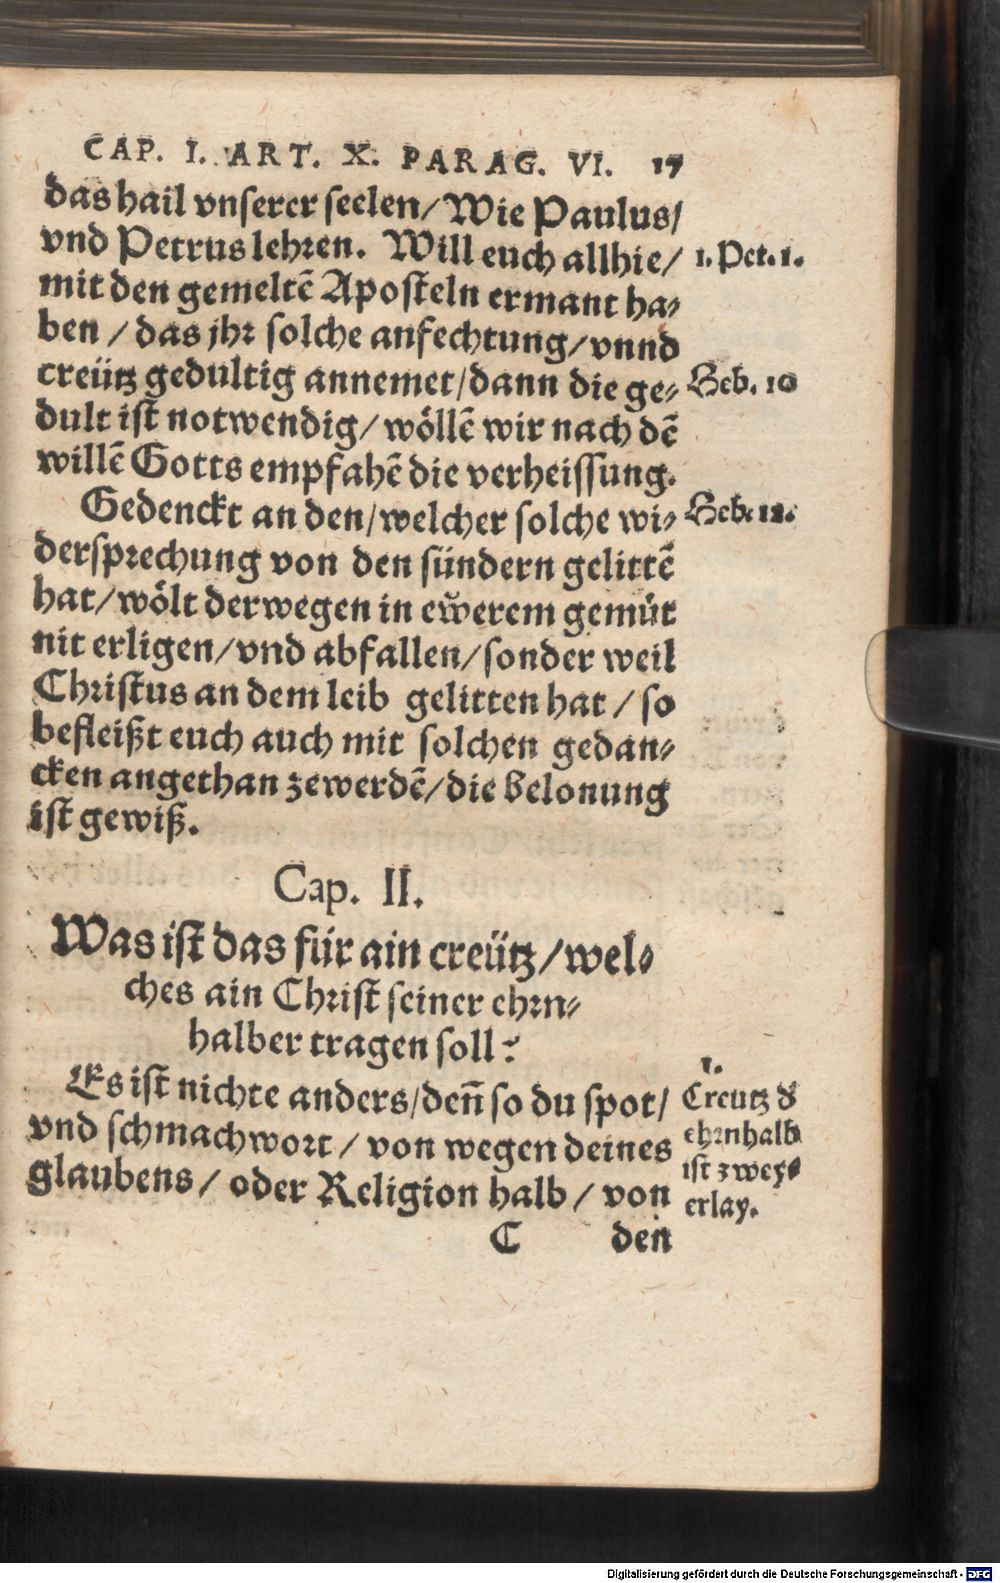 CAP. I. ART. X. PARAG. VI. 17
das hail vnserer seelen/ Wie Paulus/
vnd Petrus lehren. Will euch allhie/
1. Pet. 1.
mit den gemeltē Aposteln ermant ha-
ben / das jhr solche anfechtung/ vnnd
creütz gedultig annemet/ dann die ge-
Heb. 10
dult ist notwendig/ wöllē wir nach dē
willē Gotts empfahē die verheissung.
Gedenckt an den/ welcher solche wi-
Heb. 12.
dersprechung von den sündern gelittē
hat/ wölt derwegen in ewerem gemüt
nit erligen/ vnd abfallen/ sonder weil
Christus an dem leib gelitten hat / so
befleißt euch auch mit solchen gedan-
cken angethan zewerdē/ die belonung
ist gewiß.
Cap. II.
Was ist das für ain creütz/ wel-
ches ain Christ seiner ehrn-
halber tragen soll?
Es ist nichte anders/ deñ so du spot/
vnd schmachwort / von wegen deines
glaubens/ oder Religion halb / von
1.
Creutz d
ehrnhalb
ist zwey-
erlay.
C den
Digitalisierung gefördert durch die Deutsche Forschungsgemeinschaft - DFG